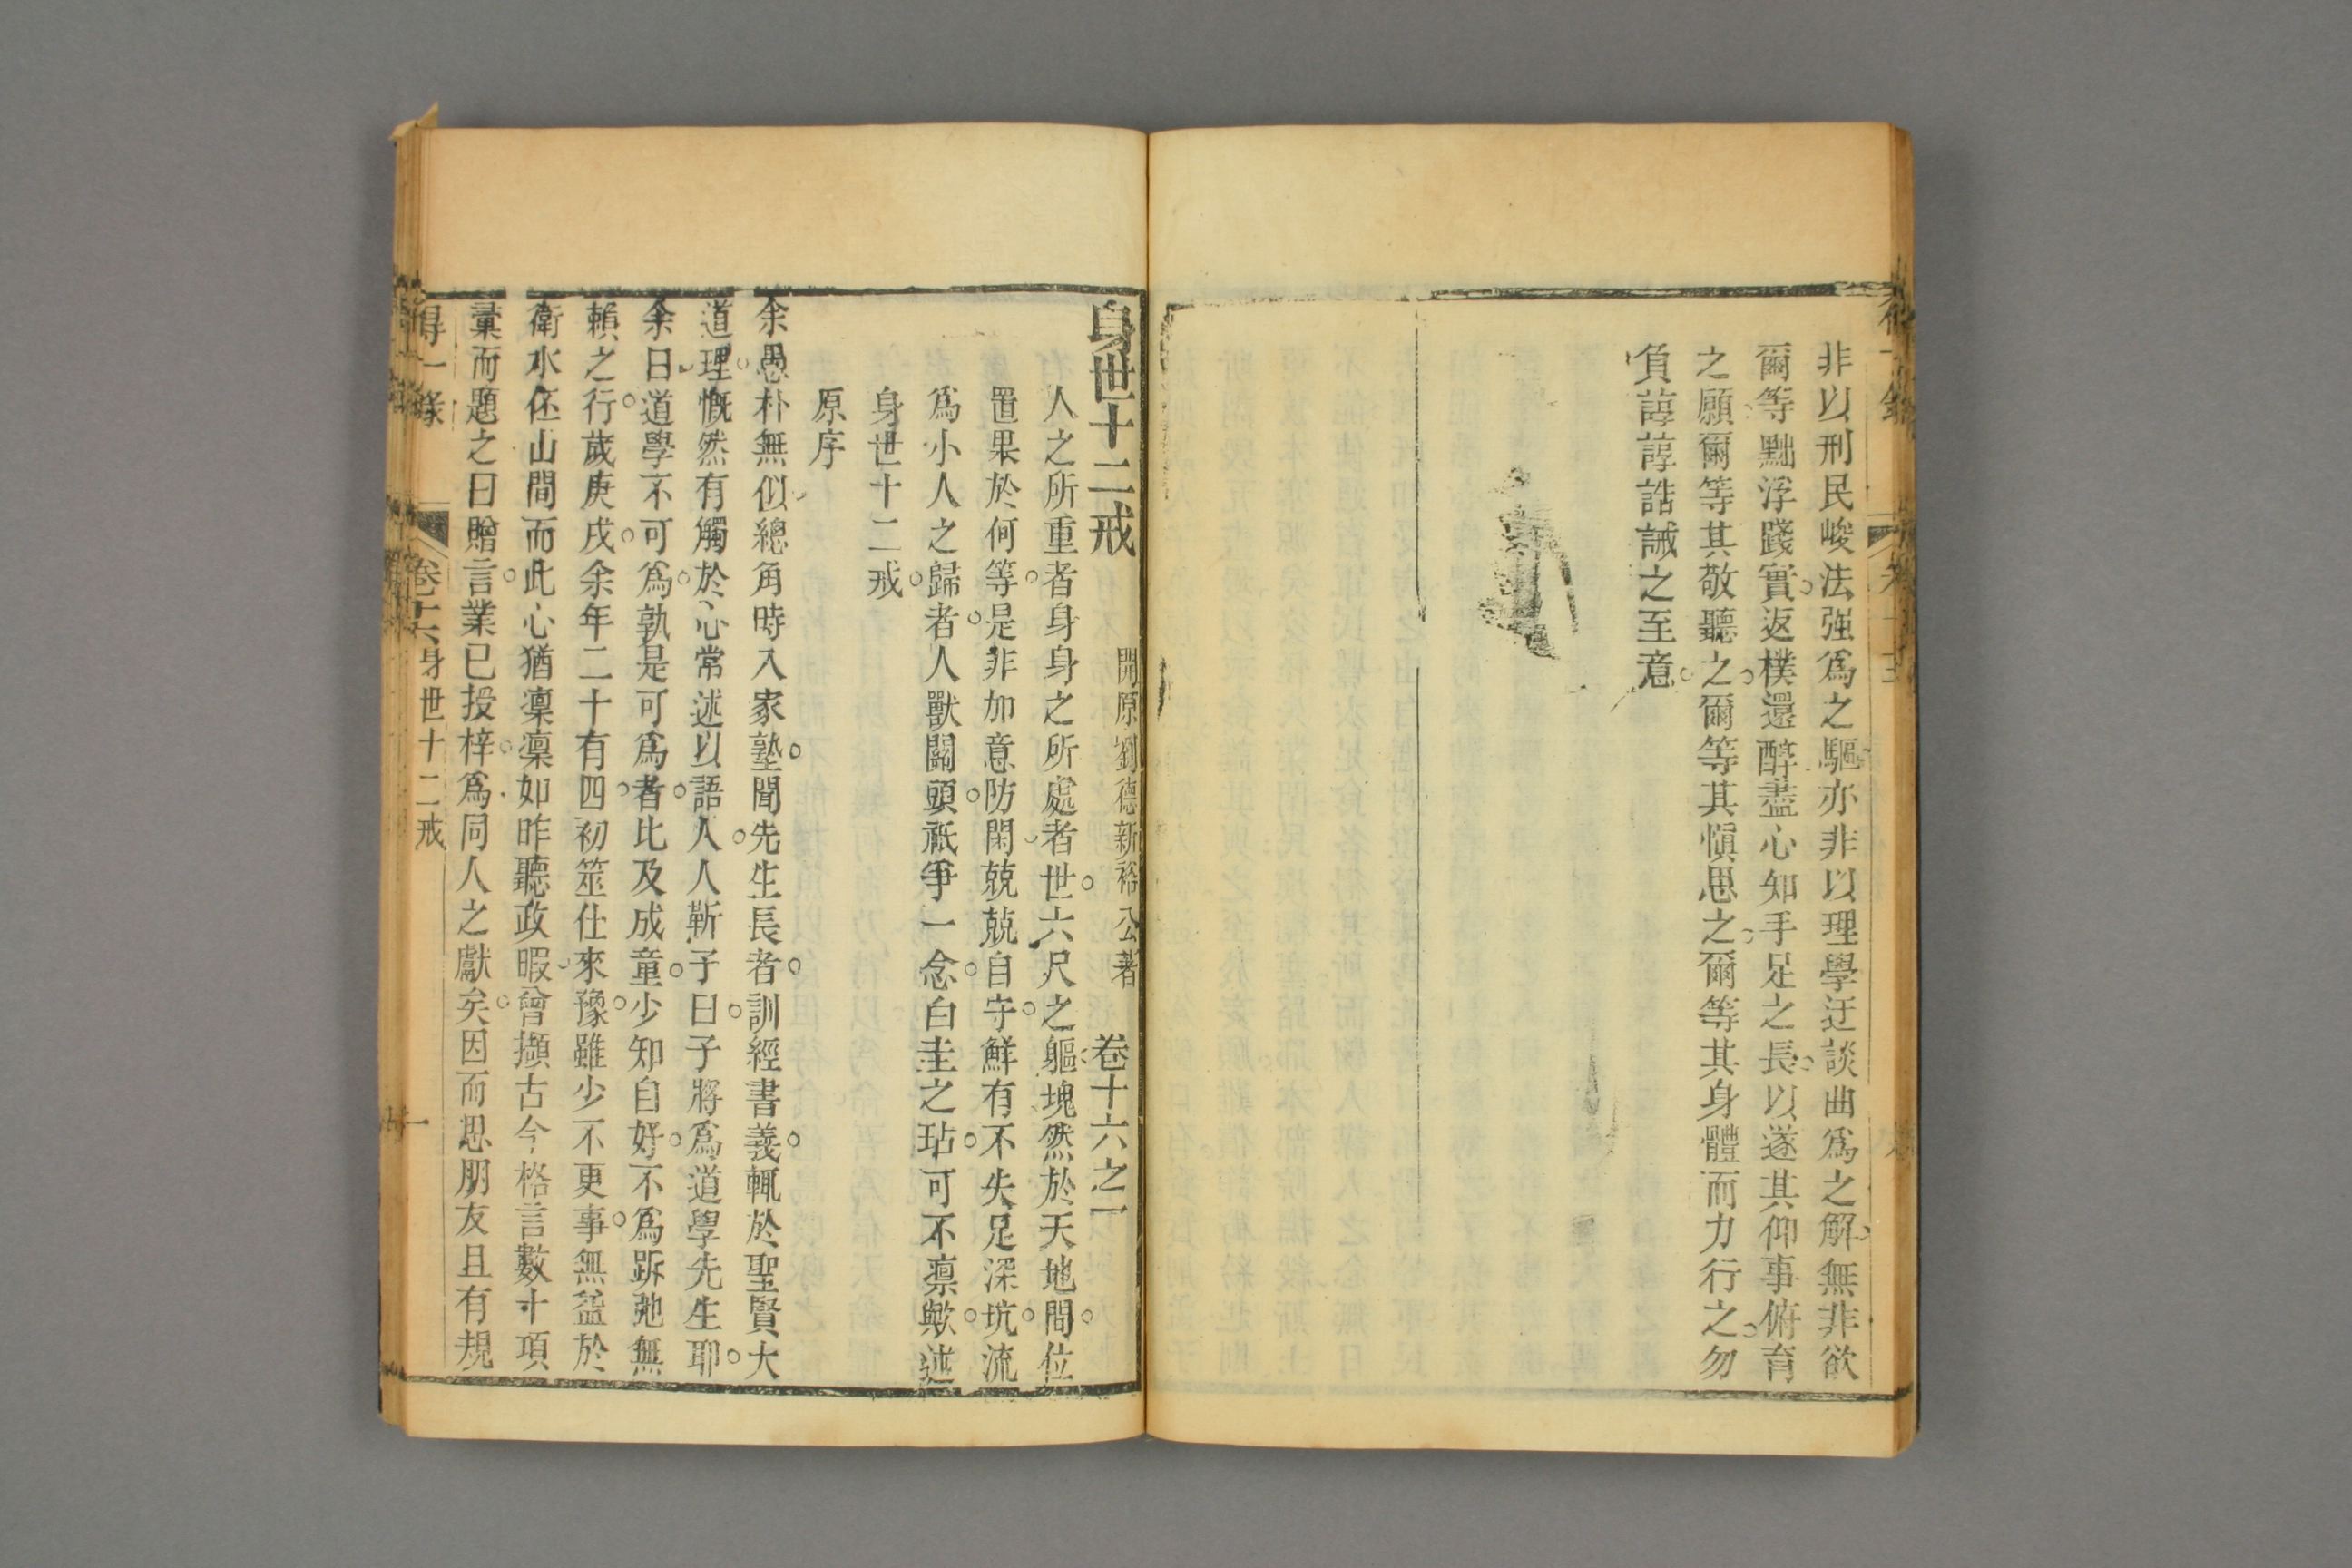 非以刑民峻法强爲之驅亦非以理學迂談曲爲之解無非欲
爾等黜浮踐實返樸還醇盡心知手足之長以遂其仰事俯育
之願爾等其敬聽之爾等其愼思之爾等其身體而力行之勿
負諄諄誥誡之至意
身世十二戒
開原劉德新裕公著
卷十六之一
人之所重者身身之所處者世六尺之軀塊然於天地間位
置果於何等是非加意防閑兢兢自守鮮有不失足深坑流
爲小人之歸者人獸關頭祗爭一念白圭之玷可不凛歟述
身世十二戒
原序
余愚朴無似總角時入家塾聞先生長者訓經書義輒於聖賢大
道理慨然有觸於心常述以語人人靳予曰子將爲道學先生耶
余曰道學不可爲孰是可爲者比及成童少知自好不爲跅弛無
賴之行歲庚戌余年二十有四初筮仕來豫雖少不更事無益於
衛水伾山間而此心猶凛凛如昨聽政暇曾擷古今格言數十項
彙而題之曰贈言業已授梓爲同人之獻矣因而思朋友且有規
得一錄
卷十六身世十二戒
一